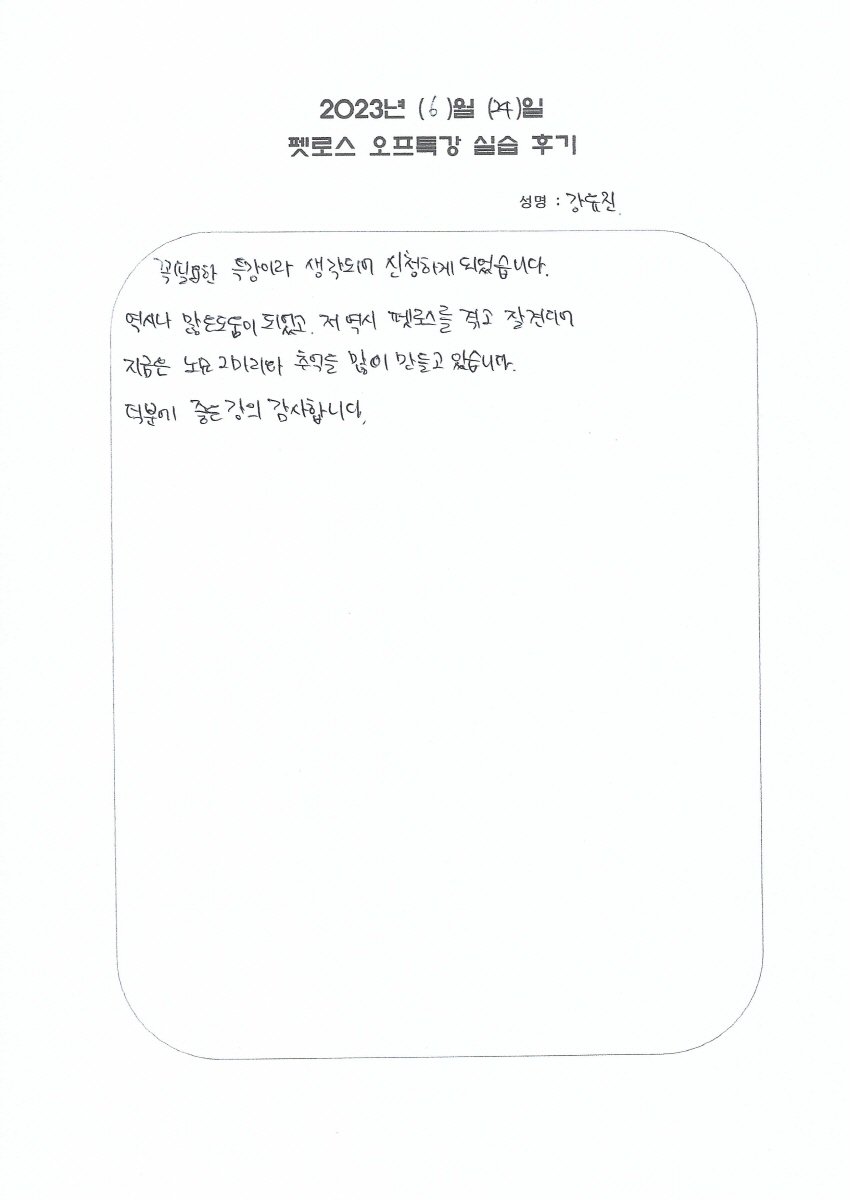 2023년 (6)월 (24)일
펫로스 오프특강 실습 후기
성명 : 강유진
꼭필요한 특강이라 생각되어 신청하게 되었습니다.
역시나 많은도움이 되었고. 저 역시 펫로스를 겪고 잘견디어
지금은 노묘 2마리와 추억들 많이 만들고 있습니다.
덕분에 좋은강의 감사합니다.